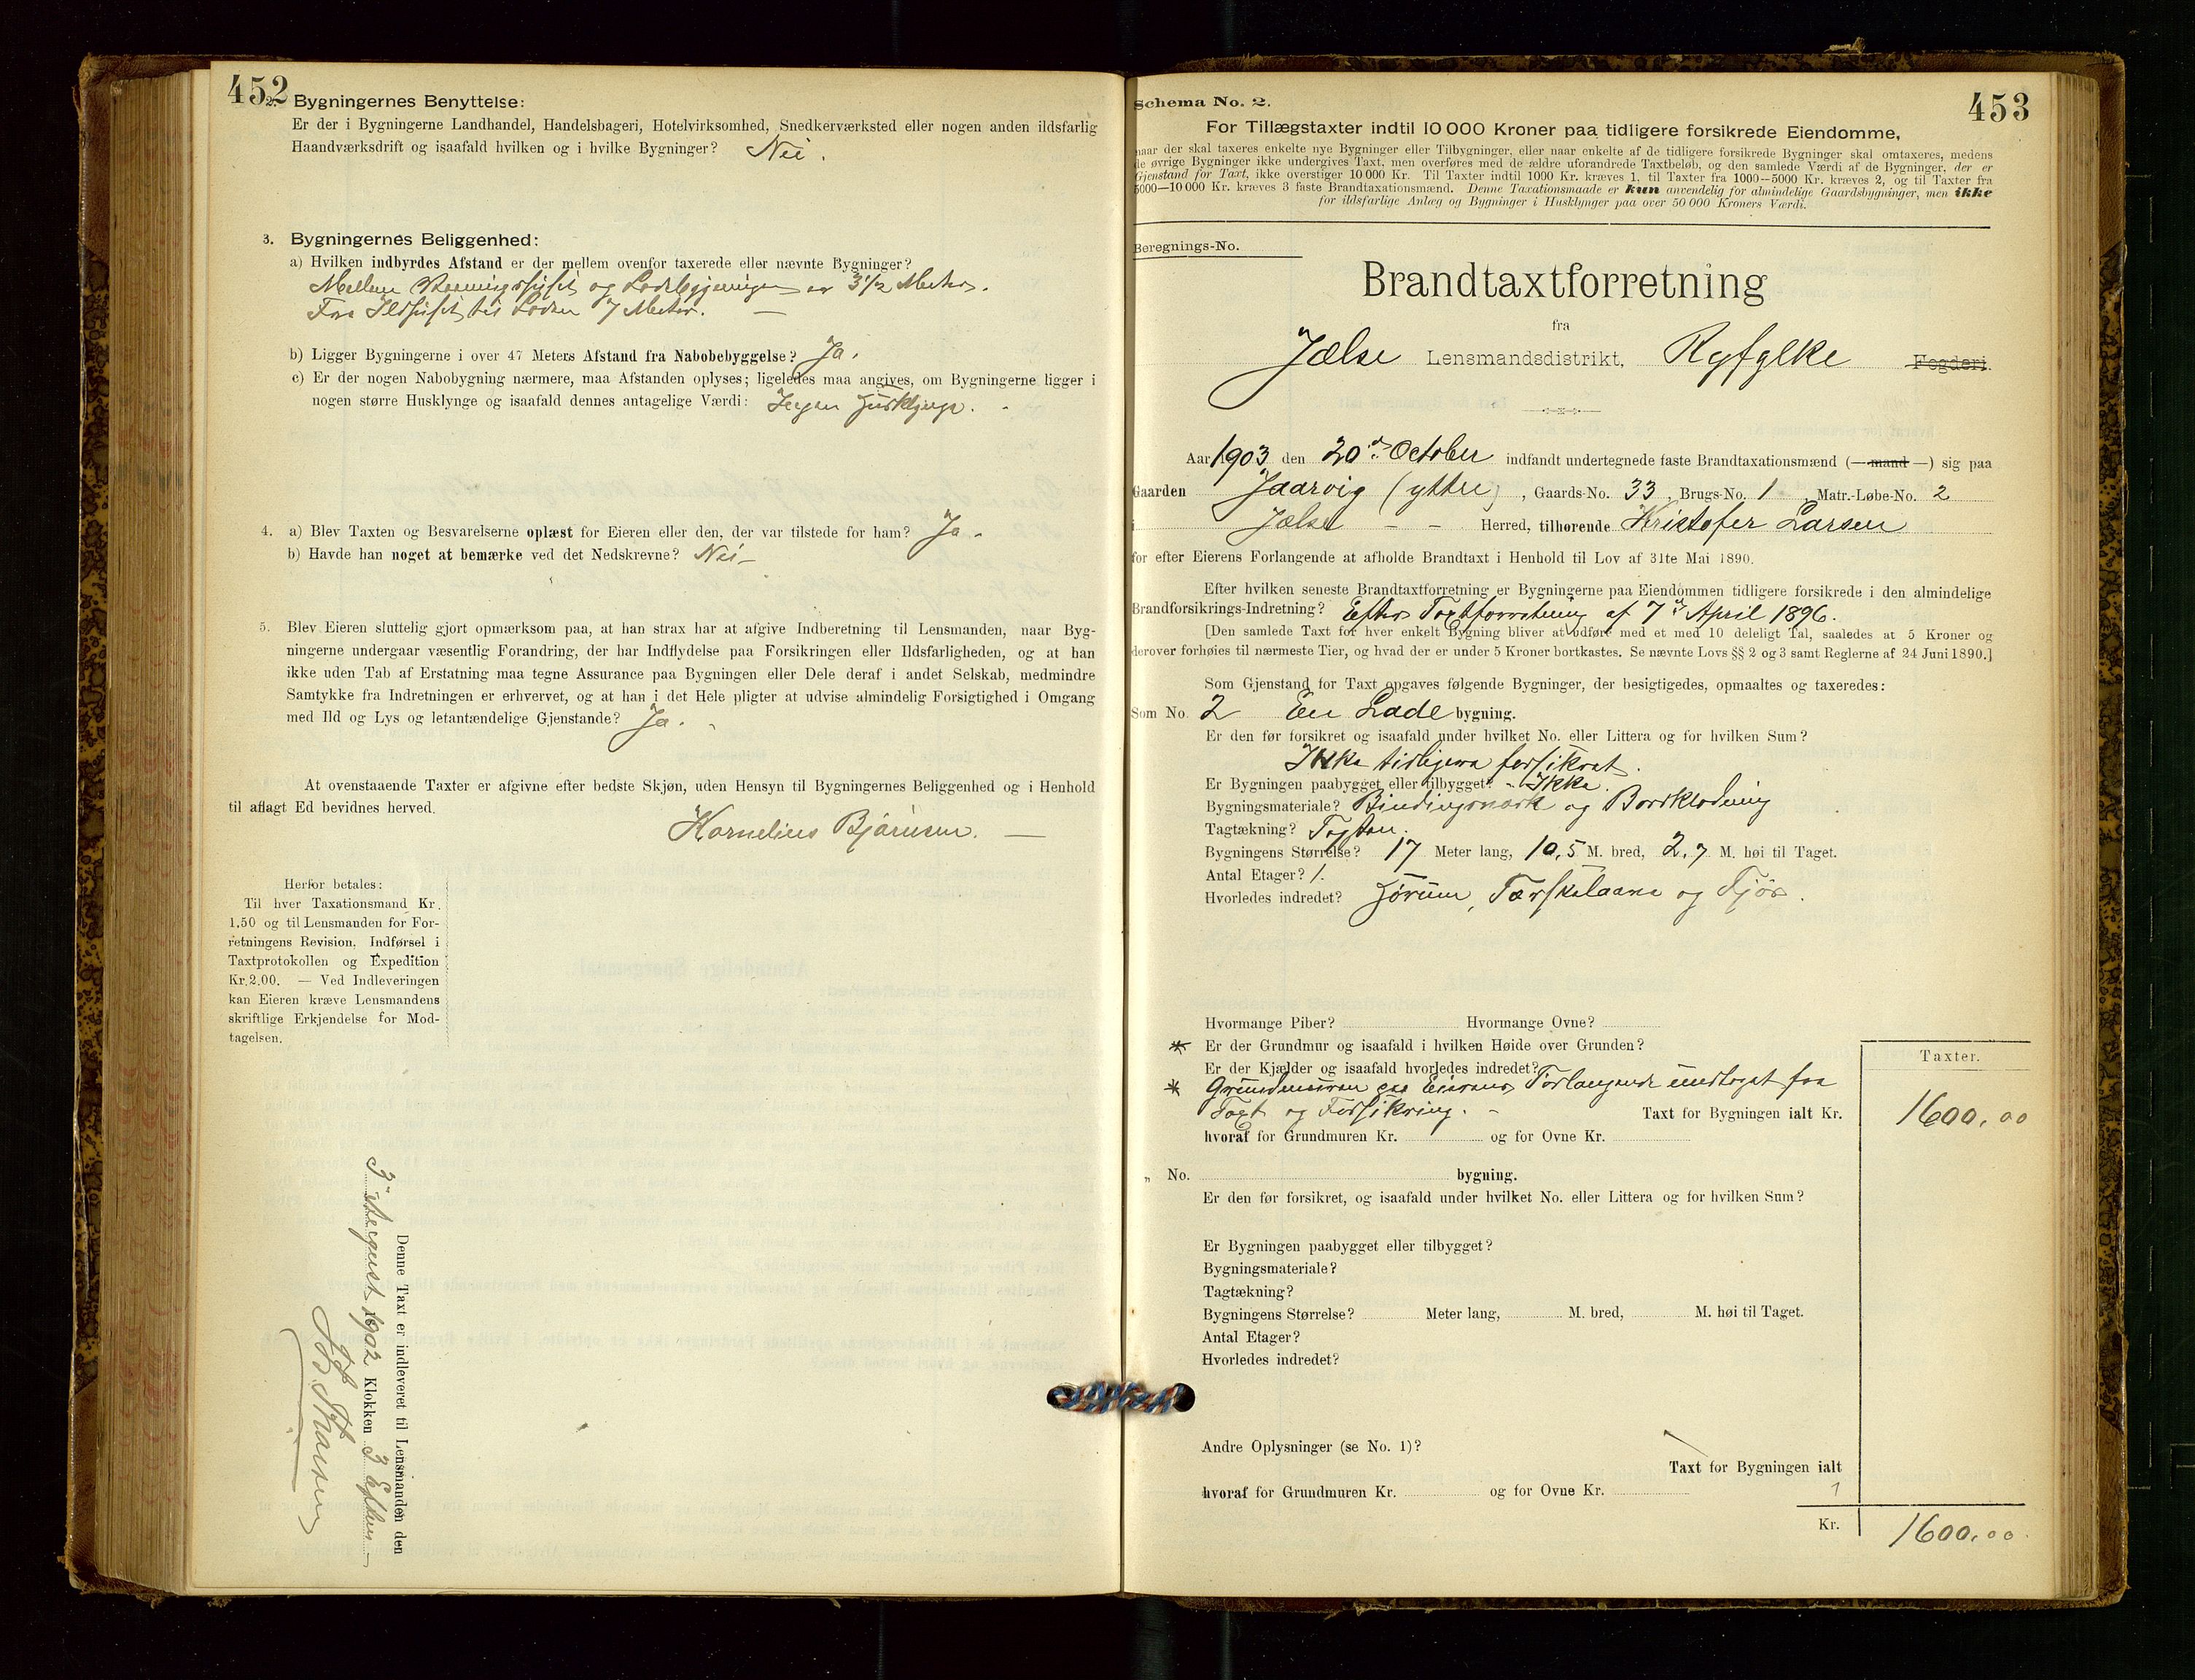 452
2. Bygningernes Benyttelse:
Er der i Bygningerne Landhandel, Handelsbageri, Hotelvirksomhed, Snedkerværksted eller nogen anden ildsfarlig
Haandværksdrift og isaafald hvilken og i hvilke Bygninger? Nei.
3. Bygningernes Beliggenhed:
a) Hvilken indbyrdes Afstand er der mellem ovenfor taxerede eller nævnte Bygninger?
Mellem Vaaningshuset og Ladebygningen er 3 1/2 Meter.
Fra Ildhuset til Laden 7 Meter. —
b) Ligger Bygningerne i over 47 Meters Afstand fra Nabobebyggelse? Ja.
c) Er der nogen Nabobygning nærmere, maa Afstanden oplyses; ligeledes maa angives, om Bygningerne ligger i
nogen større Husklynge og isaafald dennes antagelige Værdi: Ingen Husklynge.
4. a) Blev Taxten og Besvarelserne oplæst for Eieren eller den, der var tilstede for ham? Ja.
b) Havde han noget at bemærke ved det Nedskrevne? Nei
5. Blev Eieren sluttelig gjort opmærksom paa, at han strax har at afgive Indberetning til Lensmanden, naar Byg-
ningerne undergaar væsentlig Forandring, der har Indflydelse paa Forsikringen eller Ildsfarligheden, og at han
ikke uden Tab af Erstatning maa tegne Assurance paa Bygningen eller Dele deraf i andet Selskab, medmindre
Samtykke fra Indretningen er erhvervet, og at han i det Hele pligter at udvise almindelig Forsigtighed i Omgang
med Ild og Lys og letantændelige Gjenstande? Ja.
At ovenstaaende Taxter er afgivne efter bedste Skjøn, uden Hensyn til Bygningernes Beliggenhed og i Henhold
til aflagt Ed bevidnes herved.
Kornelius Bjørnsen. —
Herfor betales:
Til hver Taxationsmand Kr.
1.50 og til Lensmanden for For-
retningens Revision, Indførsel i
Taxtprotokollen og Expedition
Kr. 2.00. — Ved Indleveringen
kan Eieren kræve Lensmandens
skriftlige Erkjendelse for Mod-
tagelsen.
Denne Taxt er indleveret til Lensmanden den
3 August 1902 Klokken 3 Efter
453
Schema No. 2.
For Tillægstaxter indtil 10 000 Kroner paa tidligere forsikrede Eiendomme,
naar der skal taxeres enkelte nye Bygninger eller Tilbygninger, eller naar enkelte af de tidligere forsikrede Bygninger skal omtaxeres, medens
de øvrige Bygninger ikke undergives Taxt, men overføres med de ældre uforandrede Taxtbeløb, og den samlede Værdi af de Bygninger, der er
Gjenstand for Taxt, ikke overstiger 10 000 Kr. Til Taxter indtil 1000 Kr. kræves 1, til Taxter fra 1000—5000 Kr. kræves 2, og til Taxter fra
5000—10 000 Kr. kræves 3 faste Brandtaxationsmænd. Denne Taxationsmaade er kun anvendelig for almindelige Gaardsbygninger, men ikke
for ildsfarlige Anlæg og Bygninger i Husklynger paa over 50 000 Kroners Værdi.
Beregnings-No.
Brandtaxtforretning
fra
Jælse Lensmandsdistrikt, Ryfylke Fogderi.
Aar 1903 den 20de October indfandt undertegnede faste Brandtaxationsmænd (— mand —) sig paa
Gaarden Jaarvig (yttre), Gaards-No. 33, Brugs-No. 1, Matr.-Løbe-No. 2
i Jælse — — Herred, tilhørende Kristofer Larsen
for efter Eierens Forlangende at afholde Brandtaxt i Henhold til Lov af 31te Mai 1890.
Efter hvilken seneste Brandtaxtforretning er Bygningerne paa Eiendommen tidligere forsikrede i den almindelige
Brandforsikrings-Indretning? Efter Taxtforretning af 7de April 1896.
[Den samlede Taxt for hver enkelt Bygning bliver at udføre med et med 10 deleligt Tal, saaledes at 5 Kroner og
derover forhøies til nærmeste Tier, og hvad der er under 5 Kroner bortkastes. Se nævnte Lovs §§ 2 og 3 samt Reglerne af 24 Juni 1890.]
Som Gjenstand for Taxt opgaves følgende Bygninger, der besigtigedes, opmaaltes og taxeredes:
Som No. 2 En Lade bygning.
Er den før forsikret og isaafald under hvilket No. eller Littera og for hvilken Sum?
Ikke tidligere forsikret.
Er Bygningen paabygget eller tilbygget? Ikke.
Bygningsmateriale? Bindingsværk og Bordklædning
Tagtækning? Tagsten.
Bygningens Størrelse? 17 Meter lang, 10,5 M. bred, 2,7 M. høi til Taget.
Antal Etager? 1.
Hvorledes indredet? Hørum, Tærskelaave og Fjøs.
Hvormange Piber? Hvormange Ovne?
* Er der Grundmur og isaafald i hvilken Høide over Grunden?
Er der Kjælder og isaafald hvorledes indredet?
* Grundmuren paa Eierens Forlangende undtaget fra
Taxt og Forsikring. Taxt for Bygningen ialt Kr.
hvoraf for Grundmuren Kr. og for Ovne Kr.
Taxter.
1600,00
„ No. bygning.
Er den før forsikret, og isaafald under hvilket No. eller Littera og for hvilken Sum?
Er Bygningen paabygget eller tilbygget?
Bygningsmateriale?
Tagtækning?
Bygningens Størrelse? Meter lang, M. bred, M. høi til Taget.
Antal Etager?
Hvorledes indredet?
Andre Oplysninger (se No. 1)?
Taxt for Bygningen ialt
hvoraf for Grundmuren Kr. og for Ovne Kr.
Kr. 1600,00